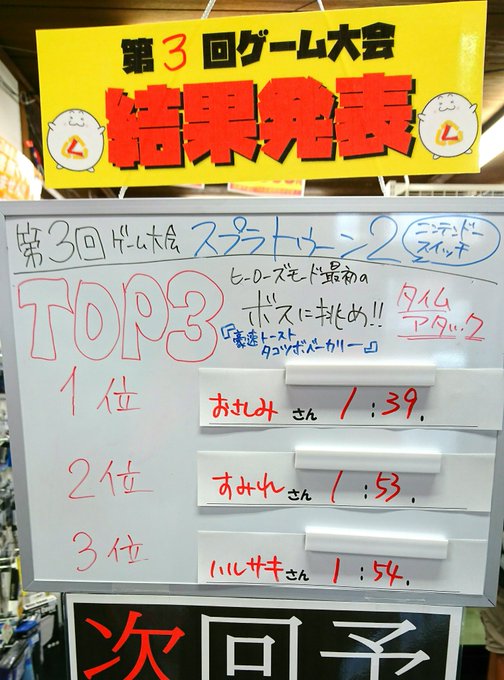 第3回ゲーム大会
結果発表
第3回ゲーム大会 スプラトゥーン2 ニンテンドースイッチ
TOP3
ヒーローズモード最初の
ボスに挑め!!
『豪速トースト
タコツボベーカリー』
タイム
アタック
1位 おさしみさん 1:39.
2位 すみれさん 1:53.
3位 ハルサキさん 1:54.
次回予